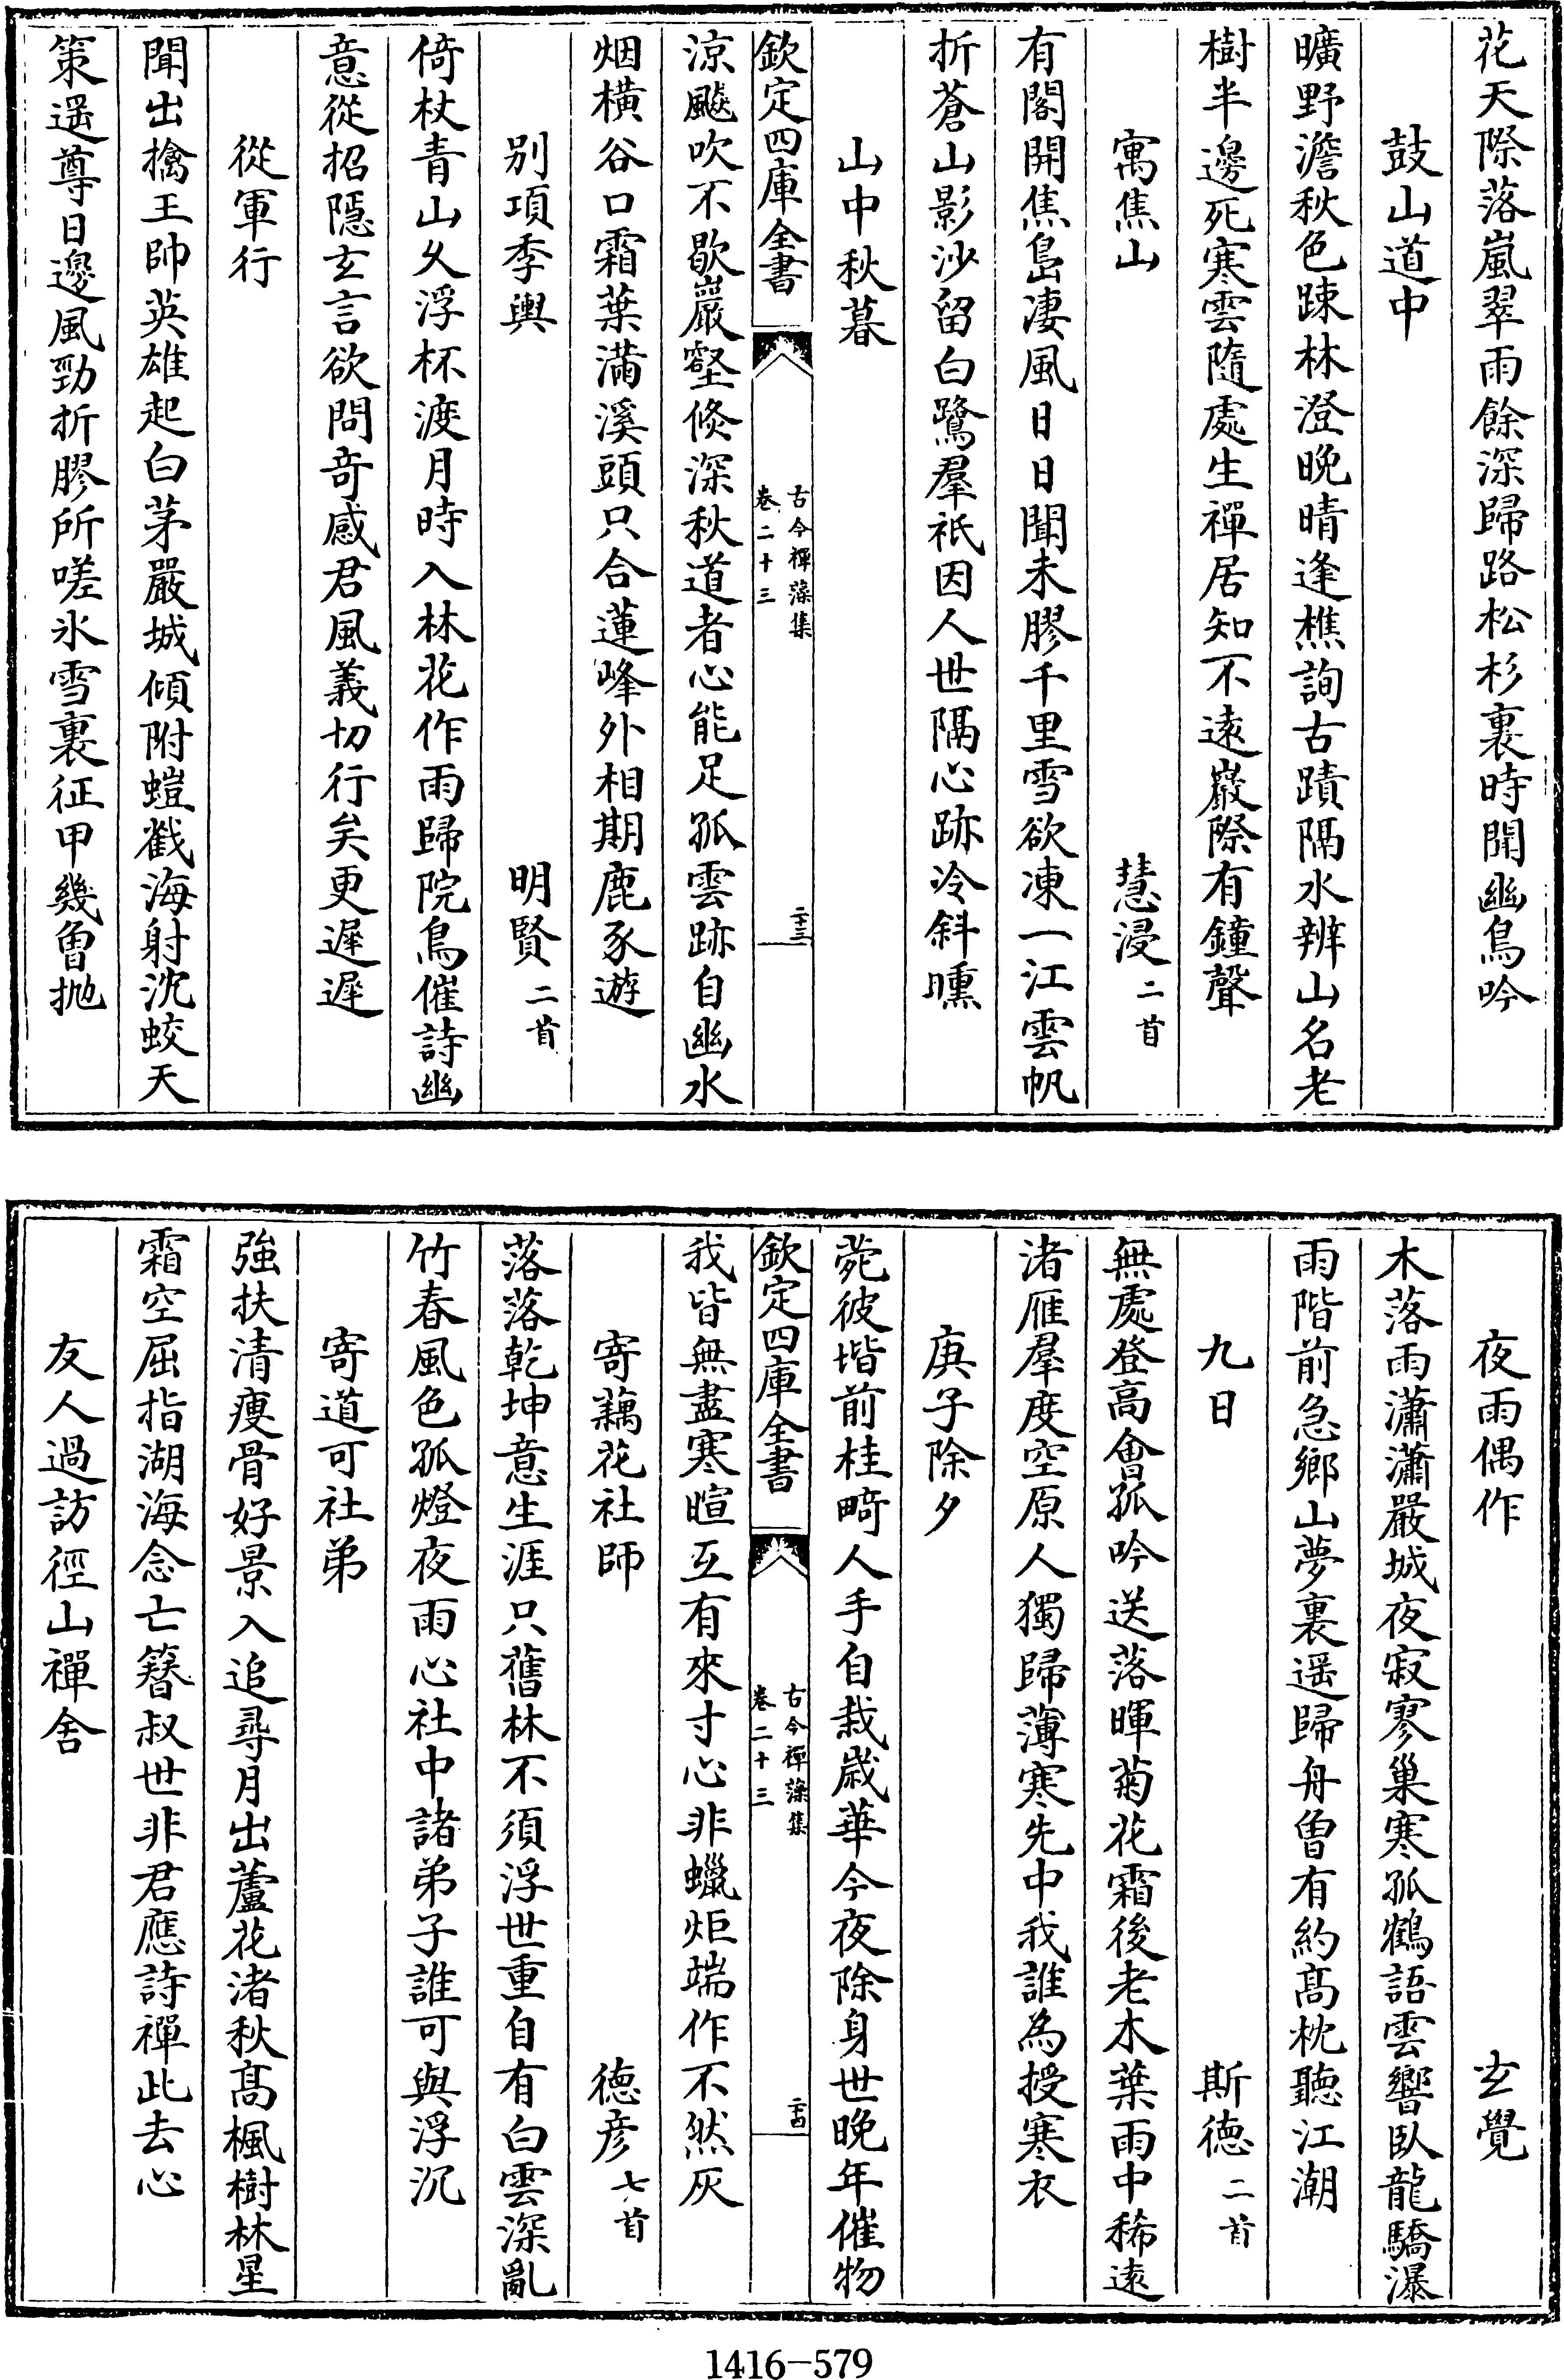 花天際落嵐翠雨餘深歸路松杉裏時聞幽鳥吟
鼓山道中
曠野澹秋色踈林澄晚晴逢樵詢古蹟隔水辨山名老
樹半邊死寒雲隨處生禪居知不遠巖際有鐘聲
寓焦山 慧浸 二首
有閣開焦島凄風日日聞未膠千里雪欲凍一江雲帆
折蒼山影沙留白鷺羣祇因人世隔心跡冷斜曛
山中秋暮
欽定四庫全書 古今禪藻集 卷二十三 二十三
涼飈吹不歇巖壑倐深秋道者心能足孤雲跡自幽水
烟橫谷口霜葉滿溪頭只合蓮峰外相期鹿豕遊
別項季輿 明賢 二首
倚杖青山久浮杯渡月時入林花作雨歸院鳥催詩幽
意從招隱玄言欲問奇感君風義切行矣更遲遲
從軍行
聞出擒王帥英雄起白茅嚴城傾附螘戳海射沈蛟天
策遥尊日邊風勁折膠所嗟氷雪裏征甲幾曾抛
夜雨偶作 玄覺
木落雨瀟瀟嚴城夜寂寥巢寒孤鶴語雲響臥龍驕瀑
雨階前急鄉山夢裏遥歸舟曾有約髙枕聽江潮
九日 斯徳 二首
無處登高會孤吟送落暉菊花霜後老木葉雨中稀遠
渚雁羣度空原人獨歸薄寒先中我誰為授寒衣
庚子除夕
菀彼堦前桂畸人手自栽歲華今夜除身世晚年催物
欽定四庫全書 古今禪藻集 卷二十三 二十四
我皆無盡寒暄互有來寸心非蠟炬端作不然灰
寄藕花社師 徳彦 七首
落落乾坤意生涯只舊林不須浮世重自有白雲深亂
竹春風色孤燈夜雨心社中諸弟子誰可與浮沉
寄道可社弟
強扶清瘦骨好景入追尋月出蘆花渚秋髙楓樹林星
霜空屈指湖海念亡簮叔世非君應詩禪此去心
友人過訪徑山禪舍
1416-579